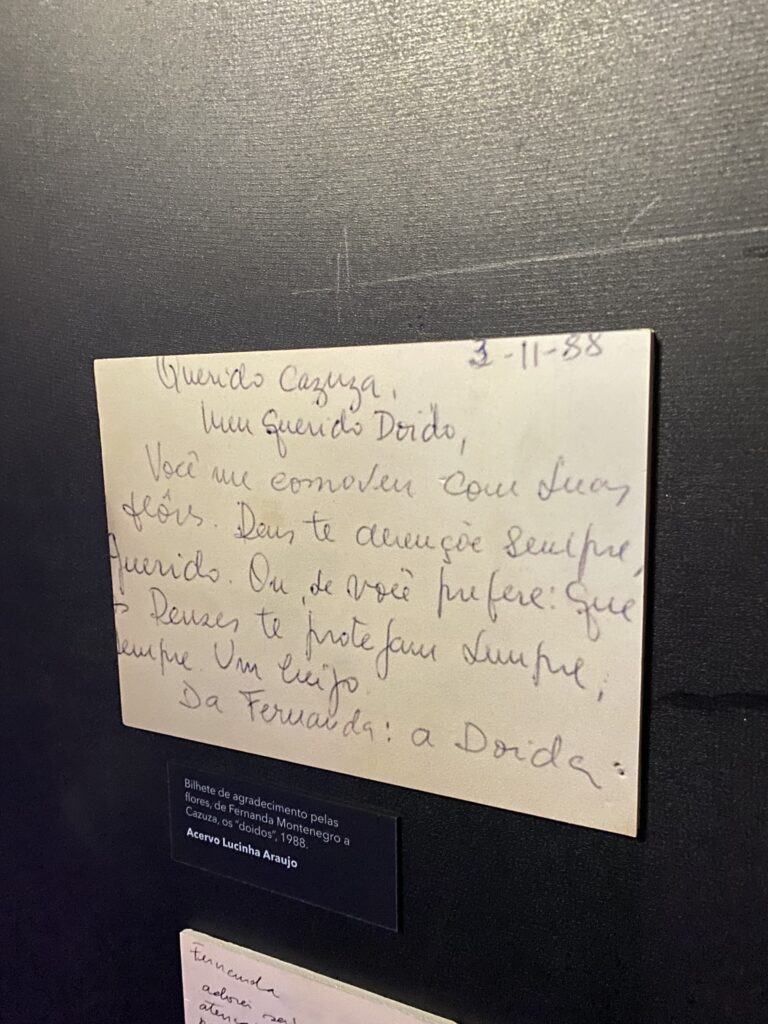 3-11-88
Querido Cazuza,
Meu Querido Doido,
Você me comoveu com suas
flôres. Deus te abençõe sempre,
Querido. Ou, se você prefere: que
os Deuses te protejam sempre,
sempre. Um beijo.
Da Fernanda: a Doida:
Bilhete de agradecimento pelas
flores, de Fernanda Montenegro a
Cazuza, os "doidos", 1988.
Acervo Lucinha Araujo
Fernanda
adorei